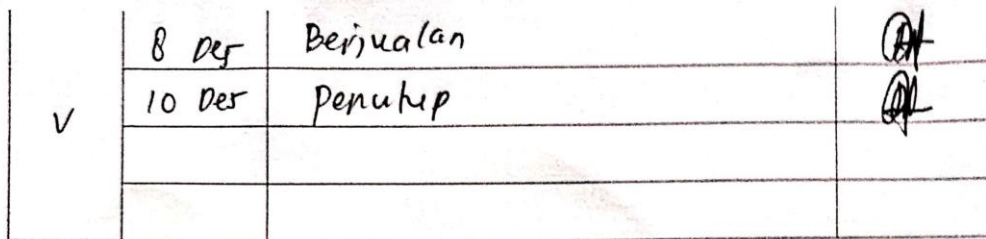 8 Des Berjualan
V 10 Des Penutup